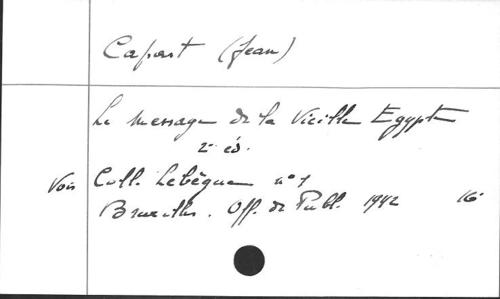 Capart (Jean)
Le message de la Vieille Egypte
2e éd.
Voir Coll. Lebègue n° 7
Bruxelles. Off. de Publ. 1942 16°